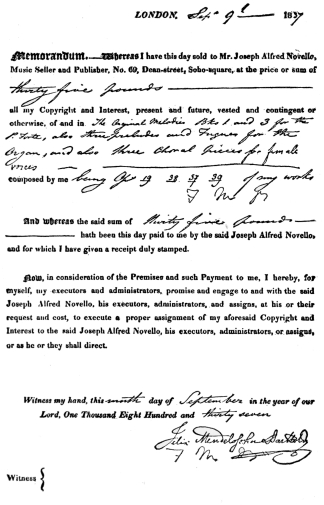 LONDON, Sepr 9th 1837
Memorandum.—Whereas I have this day sold to Mr. Joseph Alfred Novello,
Music Seller and Publisher, No. 69, Dean-street, Soho-square, at the price or sum of
thirty five pounds
all my Copyright and Interest, present and future, vested and contingent or
otherwise, of and in The Original Melodies Bks 1 and 3 for the
P. Forte, also three Preludes and Fugues for the
Organ, and also three Choral pieces for female
voices
composed by me being Op. 19 38 37 39 of my works
F M
And whereas the said sum of thirty five pounds
hath been this day paid to me by the said Joseph Alfred Novello,
and for which I have given a receipt duly stamped.
Now, in consideration of the Premises and such Payment to me, I hereby, for
myself, my executors and administrators, promise and engage to and with the said
Joseph Alfred Novello, his executors, administrators, and assigns, at his or their
request and cost, to execute a proper assignment of my aforesaid Copyright and
Interest to the said Joseph Alfred Novello, his executors, administrators, or assigns,
or as he or they shall direct.
Witness my hand, this ninth day of September in the year of our
Lord, One Thousand Eight Hundred and thirty seven
Felix Mendelssohn Bartholdy
F M
Witness